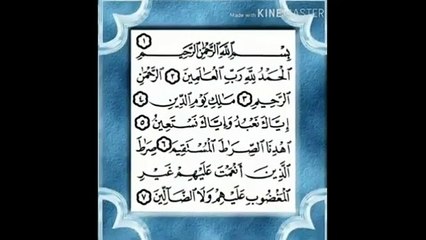 Made with KINEMASTER
١
بِسْمِ اللَّهِ الرَّحْمَٰنِ الرَّحِيمِ
الْحَمْدُ لِلَّهِ رَبِّ الْعَالَمِينَ ٢ الرَّحْمَٰنِ
الرَّحِيمِ ٣ مَالِكِ يَوْمِ الدِّينِ ٤
إِيَّاكَ نَعْبُدُ وَإِيَّاكَ نَسْتَعِينُ ٥
اهْدِنَا الصِّرَاطَ الْمُسْتَقِيمَ ٦ صِرَاطَ
الَّذِينَ أَنْعَمْتَ عَلَيْهِمْ غَيْرِ
الْمَغْضُوبِ عَلَيْهِمْ وَلَا الضَّالِّينَ ٧